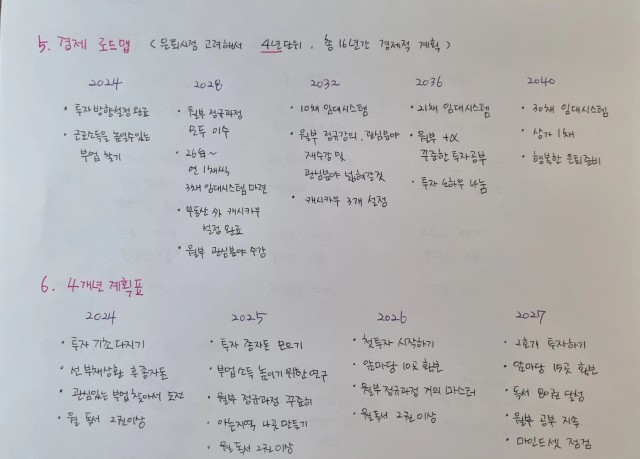 5. 경제 로드맵 (은퇴시점 고려해서 4년단위, 총 16년간 경제적 계획)
2024
• 투자 방향설정 완료
• 근로소득을 높일수있는
부업 찾기
2028
• 월부 정규과정
모두 이수
• 26년~
연 1채씩
3채 임대시스템 마련
• 부동산 外 캐시카우
설정 완료
• 월부 관심분야 수강
2032
• 10채 임대시스템
• 월부 정규강의, 관심분야
재수강 및
관심분야 넓혀갈것
• 캐시카우 3개 설정
2036
• 21채 임대시스템
• 월부 +α
꾸준한 투자공부
• 투자 노하우 나눔
2040
• 30채 임대시스템
• 상가 1채
• 행복한 은퇴준비
6. 4개년 계획표
2024
• 투자 기초 다지기
• 선 부채상환 후 종자돈
• 관심있는 부업 찾아서 도전
• 월 독서 2권이상
2025
• 투자 종자돈 모으기
• 부업 소득 높이기 위한 연구
• 월부 정규과정 꾸준히
• 아는지역 나곳 만들기
• 월 독서 2권이상
2026
• 첫투자 시작하기
• 앞마당 10곳 확보
• 월부 정규과정 거의 마스터
• 월독서 2권이상
2027
• 2호기 투자하기
• 앞마당 15곳 확보
• 독서 80권 달성
• 월부 공부 지속
• 마인드셋 점검